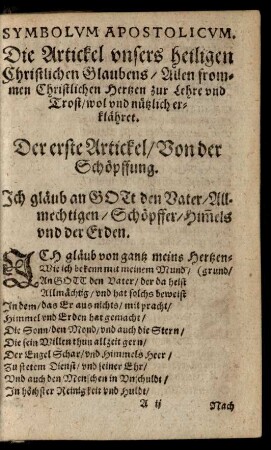 SYMBOLVM APOSTOLICVM.
Die Artickel vnsers heiligen
Christlichen Glaubens / Allen from-
men Christlichen Hertzen zur Lehre vnd
Trost / wol vnd nützlich er-
klähret.
Der erste Artickel / Von der
Schöpffung.
Ich gläub an GOTt den Vater / All-
mechtigen / Schöpffer / Him̃els
vnd der Erden.
ICH gläub von gantz meins Hertzen-
Wie ich bekenn mit meinem Mund / (grund /
An GOTT den Vater / der da heist
Allmächtig / vnd hat solchs beweist
In dem / das Er aus nichts / mit pracht /
Himmel vnd Erden hat gemacht /
Die Sonn / den Mond / vnd auch die Stern /
Die sein Willen thun allzeit gern /
Der Engel Schar / vnd Himmels Heer /
Zu stetem Dienst / vnd seiner Ehr /
Vnd auch den Menschen in Vnschuldt /
In höchster Reinigkeit vnd Huldt /
A ij Nach